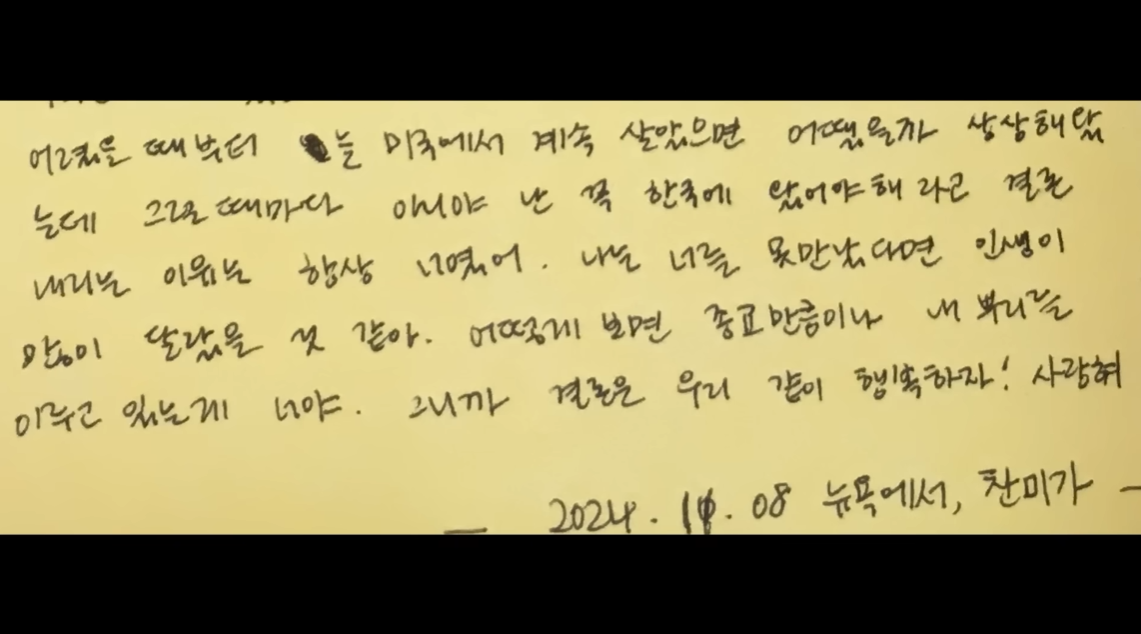 어렸을 때부터 늘 미국에서 계속 살았으면 어땠을까 상상해왔
는데 그럴 때마다 아니야 난 꼭 한국에 왔어야 해 라고 결론
내리는 이유는 항상 너였어. 나는 너를 못만났다면 인생이
많이 달랐을 것 같아. 어떻게 보면 종교만큼이나 내 뿌리를
이루고 있는게 너야. 그니까 결론은 우리 같이 행복하자! 사랑혀
— 2024. .08 뉴욕에서, 찬미가 —